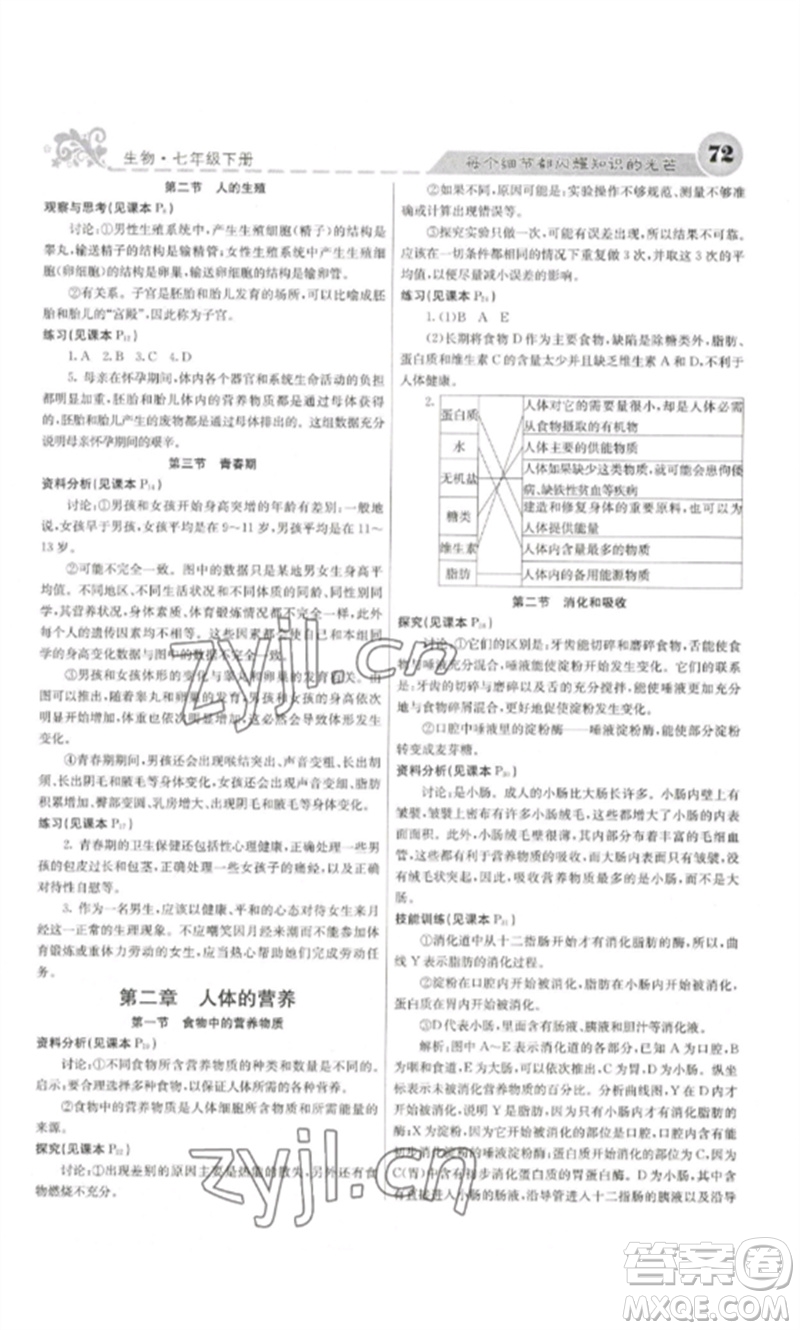 生物·七年级下册
每个细节都闪耀知识的光芒
72
第二节 人的生殖
观察与思考(见课本 P₉)
讨论:①男性生殖系统中,产生生殖细胞(精子)的结构是
睾丸,输送精子的结构是输精管;女性生殖系统中,产生生殖细
胞(卵细胞)的结构是卵巢,输送卵细胞的结构是输卵管。
②有关系。子宫是胚胎和胎儿发育的场所,可以比喻成胚
胎和胎儿的“宫殿”,因此称为子宫。
练习(见课本 P₁₂)
1. A 2. B 3. C 4. D
5. 母亲在怀孕期间,体内各个器官和系统生命活动的负担
都明显加重,胚胎和胎儿体内的营养物质都是通过母体获得
的,胚胎和胎儿产生的废物都是通过母体排出的。这组数据充分
说明母亲怀孕期间的艰辛。
第三节 青春期
资料分析(见课本 P₁₄)
讨论:①男孩和女孩开始身高突增的年龄有差别:一般地
说,女孩早于男孩,女孩平均是在 9~11 岁,男孩平均是在 11~
13 岁。
②可能不完全一致。图中的数据只是某地男女生身高平
均值。由于人们生活的环境条件、体育锻炼情况都不同,以及
每个人的遗传因素均不相同等,因此,每个男同学和每个女同
学的身高变化数据与图中的数据可能不完全一致。
③男孩和女孩的身高变化与睾丸和卵巢的发育有关。由
图可以看出,随着睾丸和卵巢的迅速发育,男女的身高依次
开始增加,体重也明显增加,这些会直接导致体形发生
变化。
④青春期期间,男孩还会出现喉结、声音变粗、长出胡
须、长出阴毛和腋毛等变化,女孩还会出现声音变细、脂肪
积累增加、臀部变圆、乳房增大、长出阴毛和腋毛等变化。
练习(见课本 P₁₇)
2. 青春期的卫生保健还包括性心理健康,男孩和女孩都有,如男
孩的包皮过长和包茎,还可能一些女孩子的痛经,以及进行
性自慰等。
3. 作为一名男生,应该以健康、平和的心态对待女生来月
经这一正常的生理现象。不应嘲笑因月经来潮而不能参加体
育锻炼或重体力劳动的女生,应热心帮助她们完成劳动任
务。
第二章 人体的营养
第一节 食物中的营养物质
资料分析(见课本
讨论:①不同食物所含营养物质的种类和数量是不同的。
启示:要合理选择食物,以保证人体对各种营养物质的需要。
②食物中的营养物质是人体细胞所含物质和所需能量的
来源。
探究(见课本 P₂₂)
讨论:①出现差别的原因主要是热能的散失,另外还有食
物燃烧不充分。
②如果不同,原因可能有实验操作不够规范、测量不够准
确或计算出现错误等。
③探究实验只做一次,可能有误差出现,所以一般
应该在一切条件都相同的情况下重复做 3 次,再取这 3 次的平
均值,以尽量减小误差的影响。
练习(见课本
1. (1)B A
(2)长期将食物 D 作为主要食物,缺陷是除糖类外,脂肪、
蛋白质和维生素 C 的含量太少并且无维生素 A 和 D,不利于
人体健康。
2.
蛋白质
水
无机盐
糖类
维生素
脂肪
人体对它的需要量很小,却是人体必需
从食物摄取的有机物
人体主要的供能物质
人体如果缺少这类物质,可能患佝偻
病、缺铁性贫血等疾病
建造和修复身体的重要原料,也可以为人
体提供能量
人体内含量最多的物质
人体内的备用能源物质
第二节 消化和吸收
探究(见课本
讨论:①它们的区别是:牙齿能切碎和磨碎食物,舌能使食
物与唾液充分混合,唾液能使淀粉发生变化。它们的联系
是:牙齿的切碎与磨碎以及舌的充分搅拌,能使唾液更加充分地
与食物碎屑混合,更好地促使淀粉发生变化。
②口腔中唾液里的淀粉酶——唾液淀粉酶,能使部分淀粉
转变成麦芽糖。
资料分析(见课本
讨论:是小肠。成人的小肠比大肠长。小肠内壁上有
皱襞,皱襞上密布许多小肠绒毛,使小肠大大增加了吸收的
表面面积。小肠绒毛壁很薄,且内部分布有丰富的毛细血
管,这些都有利于营养物质的吸收,而大肠内只有皱襞,没
有绒毛状突起。因此,吸收营养物质的主要场所是小肠而不是大
肠。
技能训练(见课本
①消化道中从十二指肠开始出现消化脂肪的酶,所以曲
线 Y 是脂肪的消化过程。
②淀粉在口腔内开始被消化,脂肪在小肠内开始被消化,
蛋白质在胃内开始被消化。
③D 代表小肠,里面含有肠液、胰液和胆汁等消化液。
解析:图中 A~E 表示消化道的各部位,已知 A 是口腔,
B 是咽和食道,C 是胃,D 是小肠,E 是大肠。纵坐
标表示未被消化营养物质的百分比。分析曲线图,Y 在 D 内才
开始被消化,说明 Y 是脂肪,
X 在 A(口腔)内开始被消化的部位是口腔,口腔内因为
C(胃)中含有初步消化蛋白质的胃蛋白酶。D(小肠)内不仅
有直接进入小肠的肠液,沿导管进入十二指肠的胰液和胆汁
zyjl.cn
zyjl.cn
答案卷
MXQE.COM